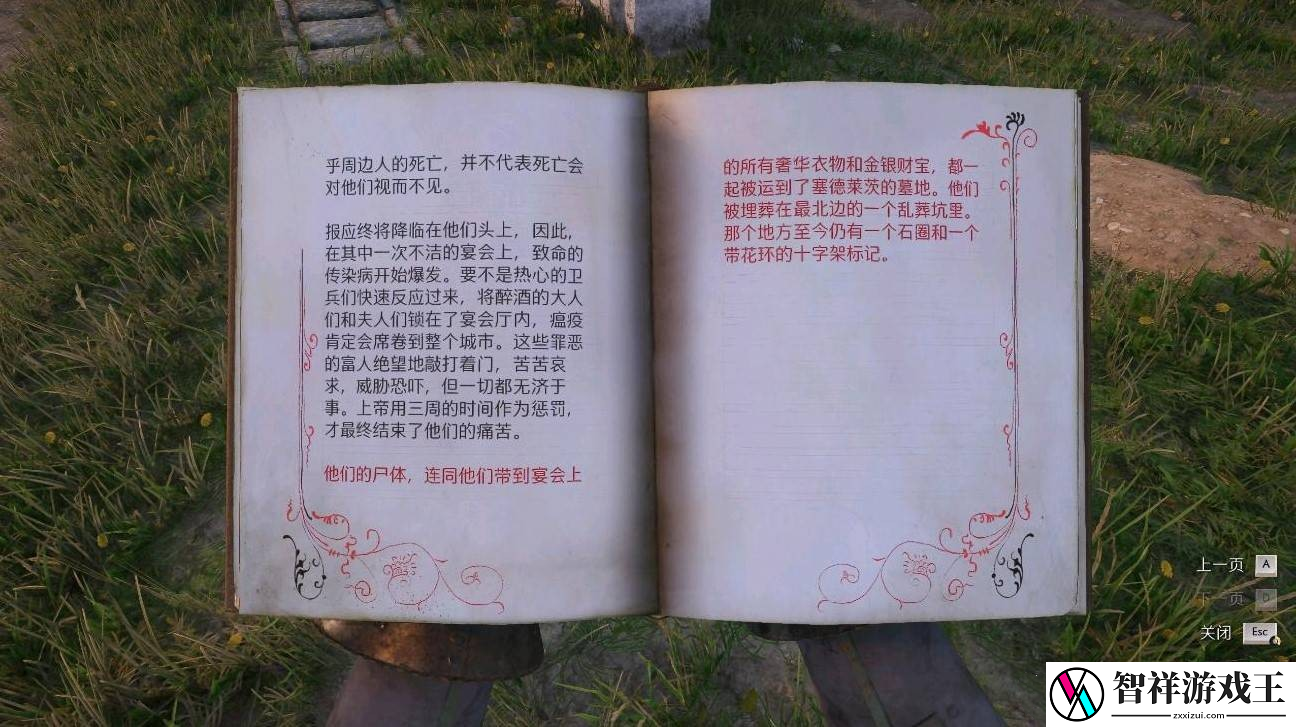 乎周边人的死亡，并不代表死亡会
对他们视而不见。
报应终将降临在他们头上，因此，
在其中一次不洁的宴会上，致命的
传染病开始爆发。要不是热心的卫
兵们快速反应过来，将醉酒的大人
们和夫人们锁在了宴会厅内，瘟疫
肯定会席卷到整个城市。这些罪恶
的富人绝望地敲打着门，苦苦哀
求，威胁恐吓，但一切都无济于
事。上帝用三周的时间作为惩罚，
才最终结束了他们的痛苦。
他们的尸体，连同他们带到宴会上
的所有奢华衣物和金银财宝，都一
起被运到了塞德莱茨的墓地。他们
被埋葬在最北边的一个乱葬坑里。
那个地方至今仍有一个石圈和一个
带花环的十字架标记。
上一页 A
下一页 D
关闭 Esc
智祥游戏王
zxxizui.com